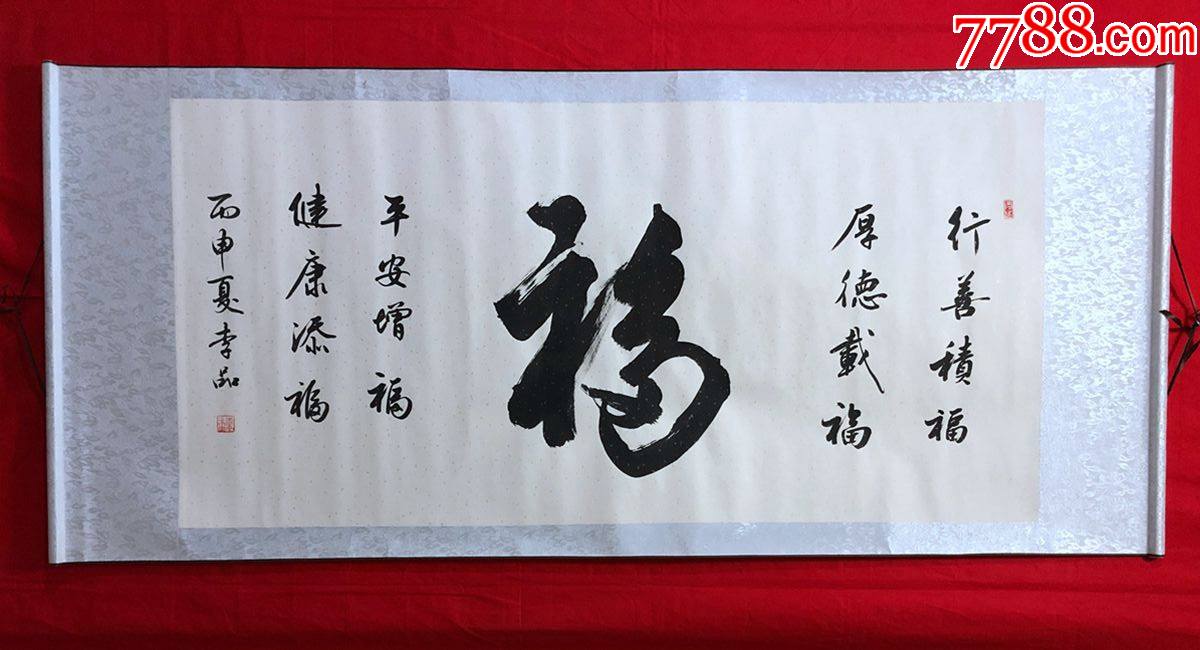 7788.com
行善積福
厚德載福
福
平安增福
健康添福
丙申夏李品